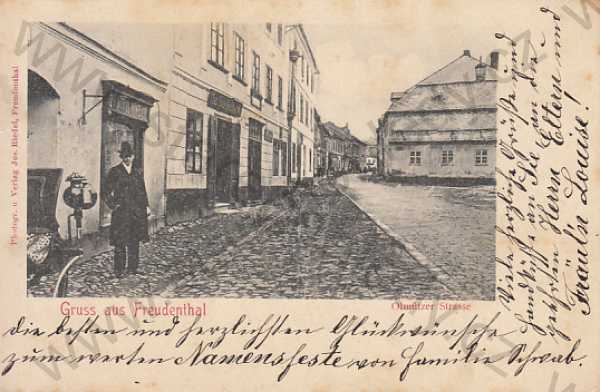 Photogr. u. Verlag Jos. Riedel, Freudenthal
Gruss aus Freudenthal
Olmützer Strasse
die besten und herzlichsten Glückwünsche
zum werten Namensfeste von Familie Schwab.
Viele herzliche Grüße und
Handküße an Sie an die
geehrten Herrn Eltern und
Fräul'n Louise!